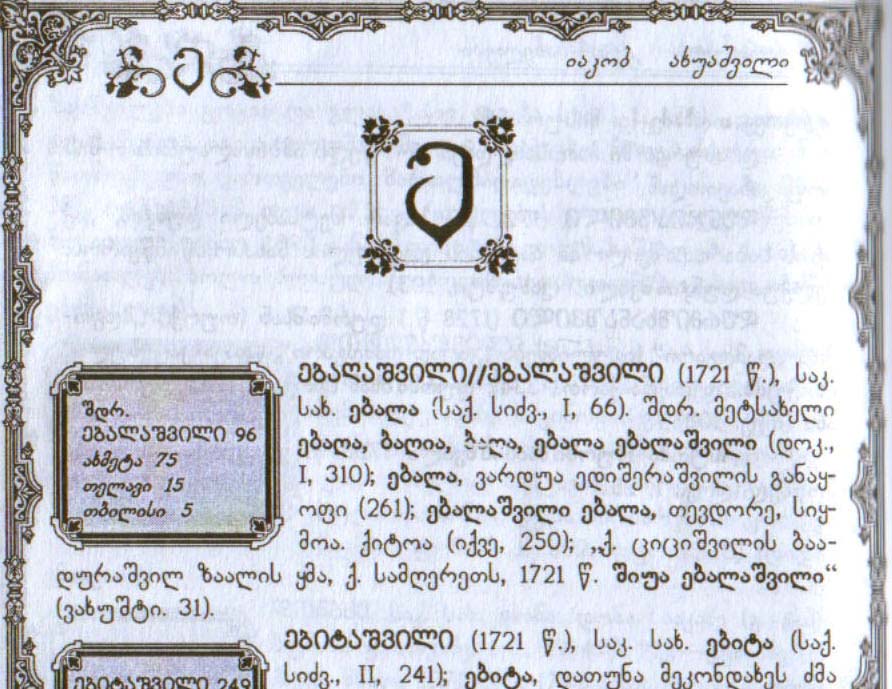 ე
იაკობ ახუაშვილი
ე
შდრ.
ᲔᲑᲐᲚᲐᲨᲕᲘᲚᲘ 96
ახმეტა 75
თელავი 15
თბილისი 5
ᲔᲑᲐᲦᲐᲨᲕᲘᲚᲘ//ᲔᲑᲐᲚᲐᲨᲕᲘᲚᲘ (1721 წ.), საკ.
სახ. ებალა (საქ. სიძვ., I, 66). შდრ. მეტსახელი
ებაღა, ბაღია, ბალა, ებალა ებალაშვილი (დოკ.,
I, 310); ებალა, ვარდუა ედიშერაშვილის განაყ-
ოფი (261); ებალაშვილი ებალა, თევდორე, სიყ-
მოა. ქიტოა (იქვე, 250); „ქ. ციციშვილის ბაა-
დურაშვილ ზაალის ყმა, ქ. სამღერეთს, 1721 წ. შიუა ებალაშვილი“
(ვახუშტი. 31).
ᲔᲑᲘᲢᲐᲨᲕᲘᲚᲘ 249
ᲔᲑᲘᲢᲐᲨᲕᲘᲚᲘ (1721 წ.), საკ. სახ. ებიტა (საქ.
სიძვ., II, 241); ებიტა, დათუნა მეკონდახეს ძმა